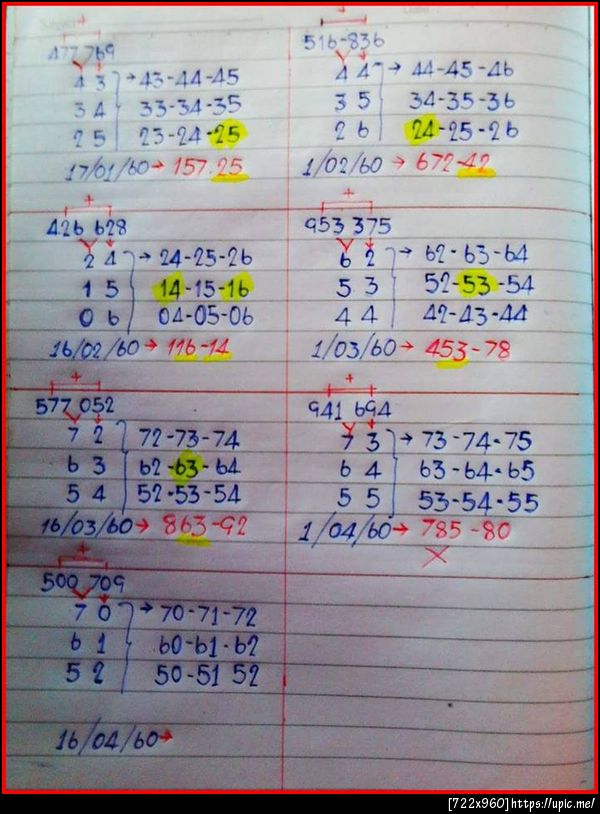 477 769
4 3 → 43-44-45
3 4 33-34-35
2 5 23-24-25
17/01/60→ 157.25
516-836
4 4 → 44-45-46
3 5 34-35-36
2 6 24-25-26
1/02/60→ 672-42
426 628
2 4 → 24-25-26
1 5 14-15-16
0 6 04-05-06
16/02/60→ 116-14
953 375
6 2 → 62-63-64
5 3 52-53-54
4 4 42-43-44
1/03/60→ 453-78
577 052
7 2 72-73-74
6 3 62-63-64
5 4 52-53-54
16/03/60→ 863-92
941 694
7 3 → 73-74-75
6 4 63-64-65
5 5 53-54-55
1/04/60→ 785-80
500 709
7 0 → 70-71-72
6 1 60-61-62
5 2 50-51 52
16/04/60→
[722x960]https://upic.me/